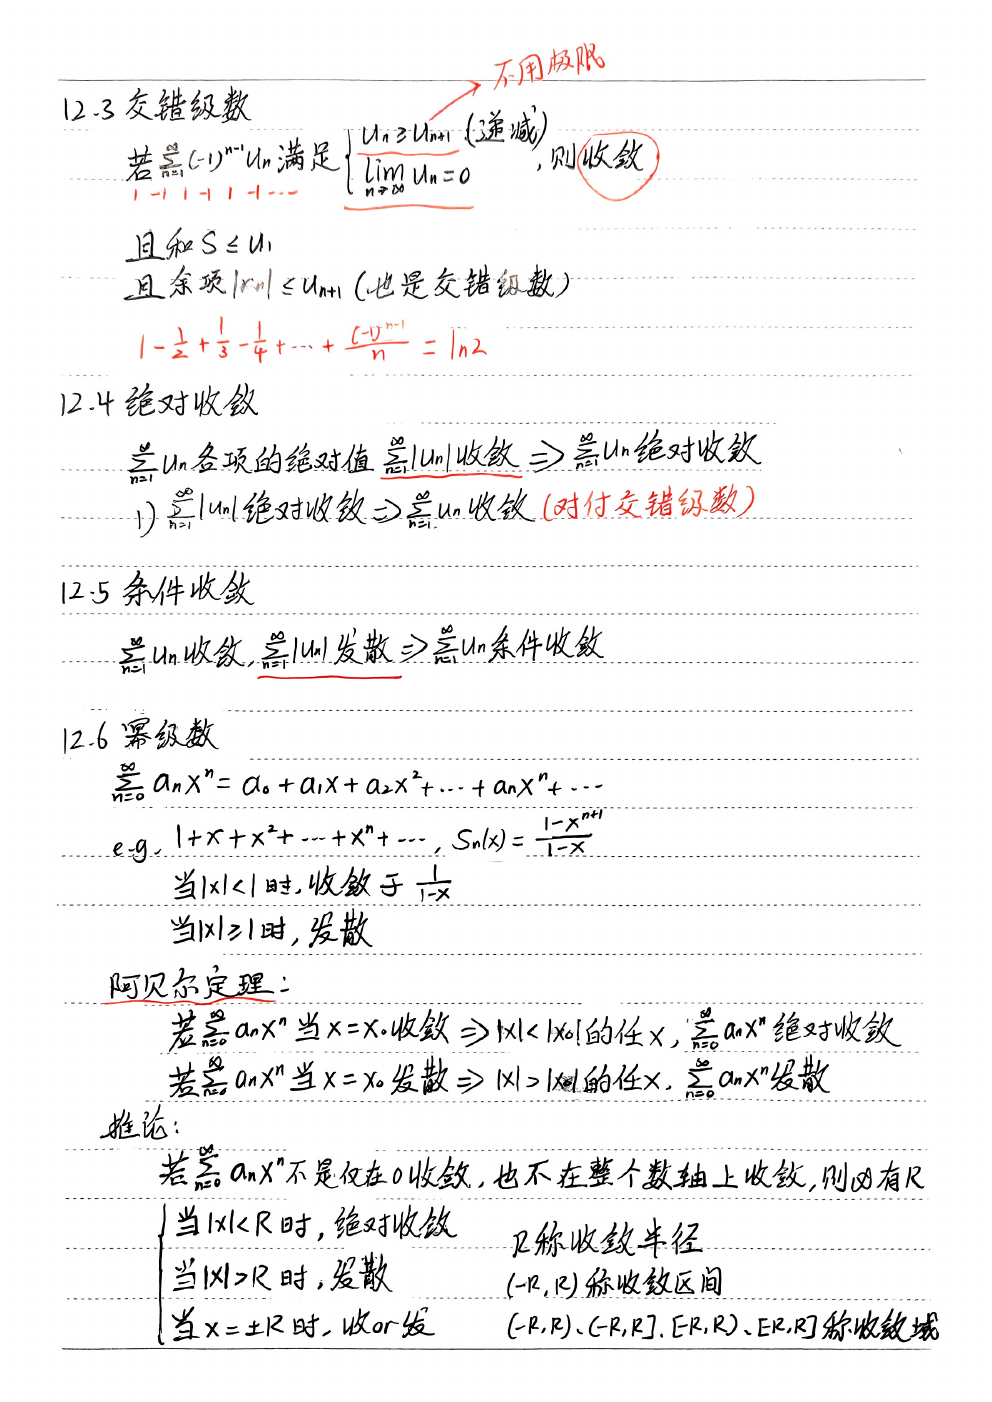 不用极限
12.3 交错级数
若 ∑_{n=1}^{∞} (-1)^{n-1} u_n 满足 { u_n ≥ u_{n+1} (递减) , 则收敛
lim_{n→∞} u_n = 0
1 -1 1 -1 1 -1 ...
且和 S ≤ u_1
且余项 |r_n| ≤ u_{n+1} (也是交错级数)
1 - 1/2 + 1/3 - 1/4 + ... + (-1)^{n-1}/n = ln2
12.4 绝对收敛
∑_{n=1}^{∞} u_n 各项的绝对值 ∑_{n=1}^{∞} |u_n| 收敛 => ∑_{n=1}^{∞} u_n 绝对收敛
1) ∑_{n=1}^{∞} |u_n| 绝对收敛 => ∑_{n=1}^{∞} u_n 收敛 (对付交错级数)
12.5 条件收敛
∑_{n=1}^{∞} u_n 收敛, ∑_{n=1}^{∞} |u_n| 发散 => ∑_{n=1}^{∞} u_n 条件收敛
12.6 幂级数
∑_{n=0}^{∞} a_n x^n = a_0 + a_1 x + a_2 x^2 + ... + a_n x^n + ...
e.g. 1 + x + x^2 + ... + x^n + ... , S_n(x) = (1-x^{n+1})/(1-x)
当 |x| < 1 时, 收敛于 1/(1-x)
当 |x| ≥ 1 时, 发散
阿贝尔定理:
若 ∑_{n=0}^{∞} a_n x^n 当 x = x_0 收敛 => |x| < |x_0| 的任 x, ∑_{n=0}^{∞} a_n x^n 绝对收敛
若 ∑_{n=0}^{∞} a_n x^n 当 x = x_0 发散 => |x| > |x_0| 的任 x, ∑_{n=0}^{∞} a_n x^n 发散
推论:
若 ∑_{n=0}^{∞} a_n x^n 不是仅在 0 收敛, 也不在整个数轴上收敛, 则必有 R
当 |x| < R 时, 绝对收敛
R 称收敛半径
当 |x| > R 时, 发散
(-R,R) 称收敛区间
当 x = ±R 时, 收 or 发
(-R,R)、(-R,R]、[-R,R)、[-R,R] 称收敛域